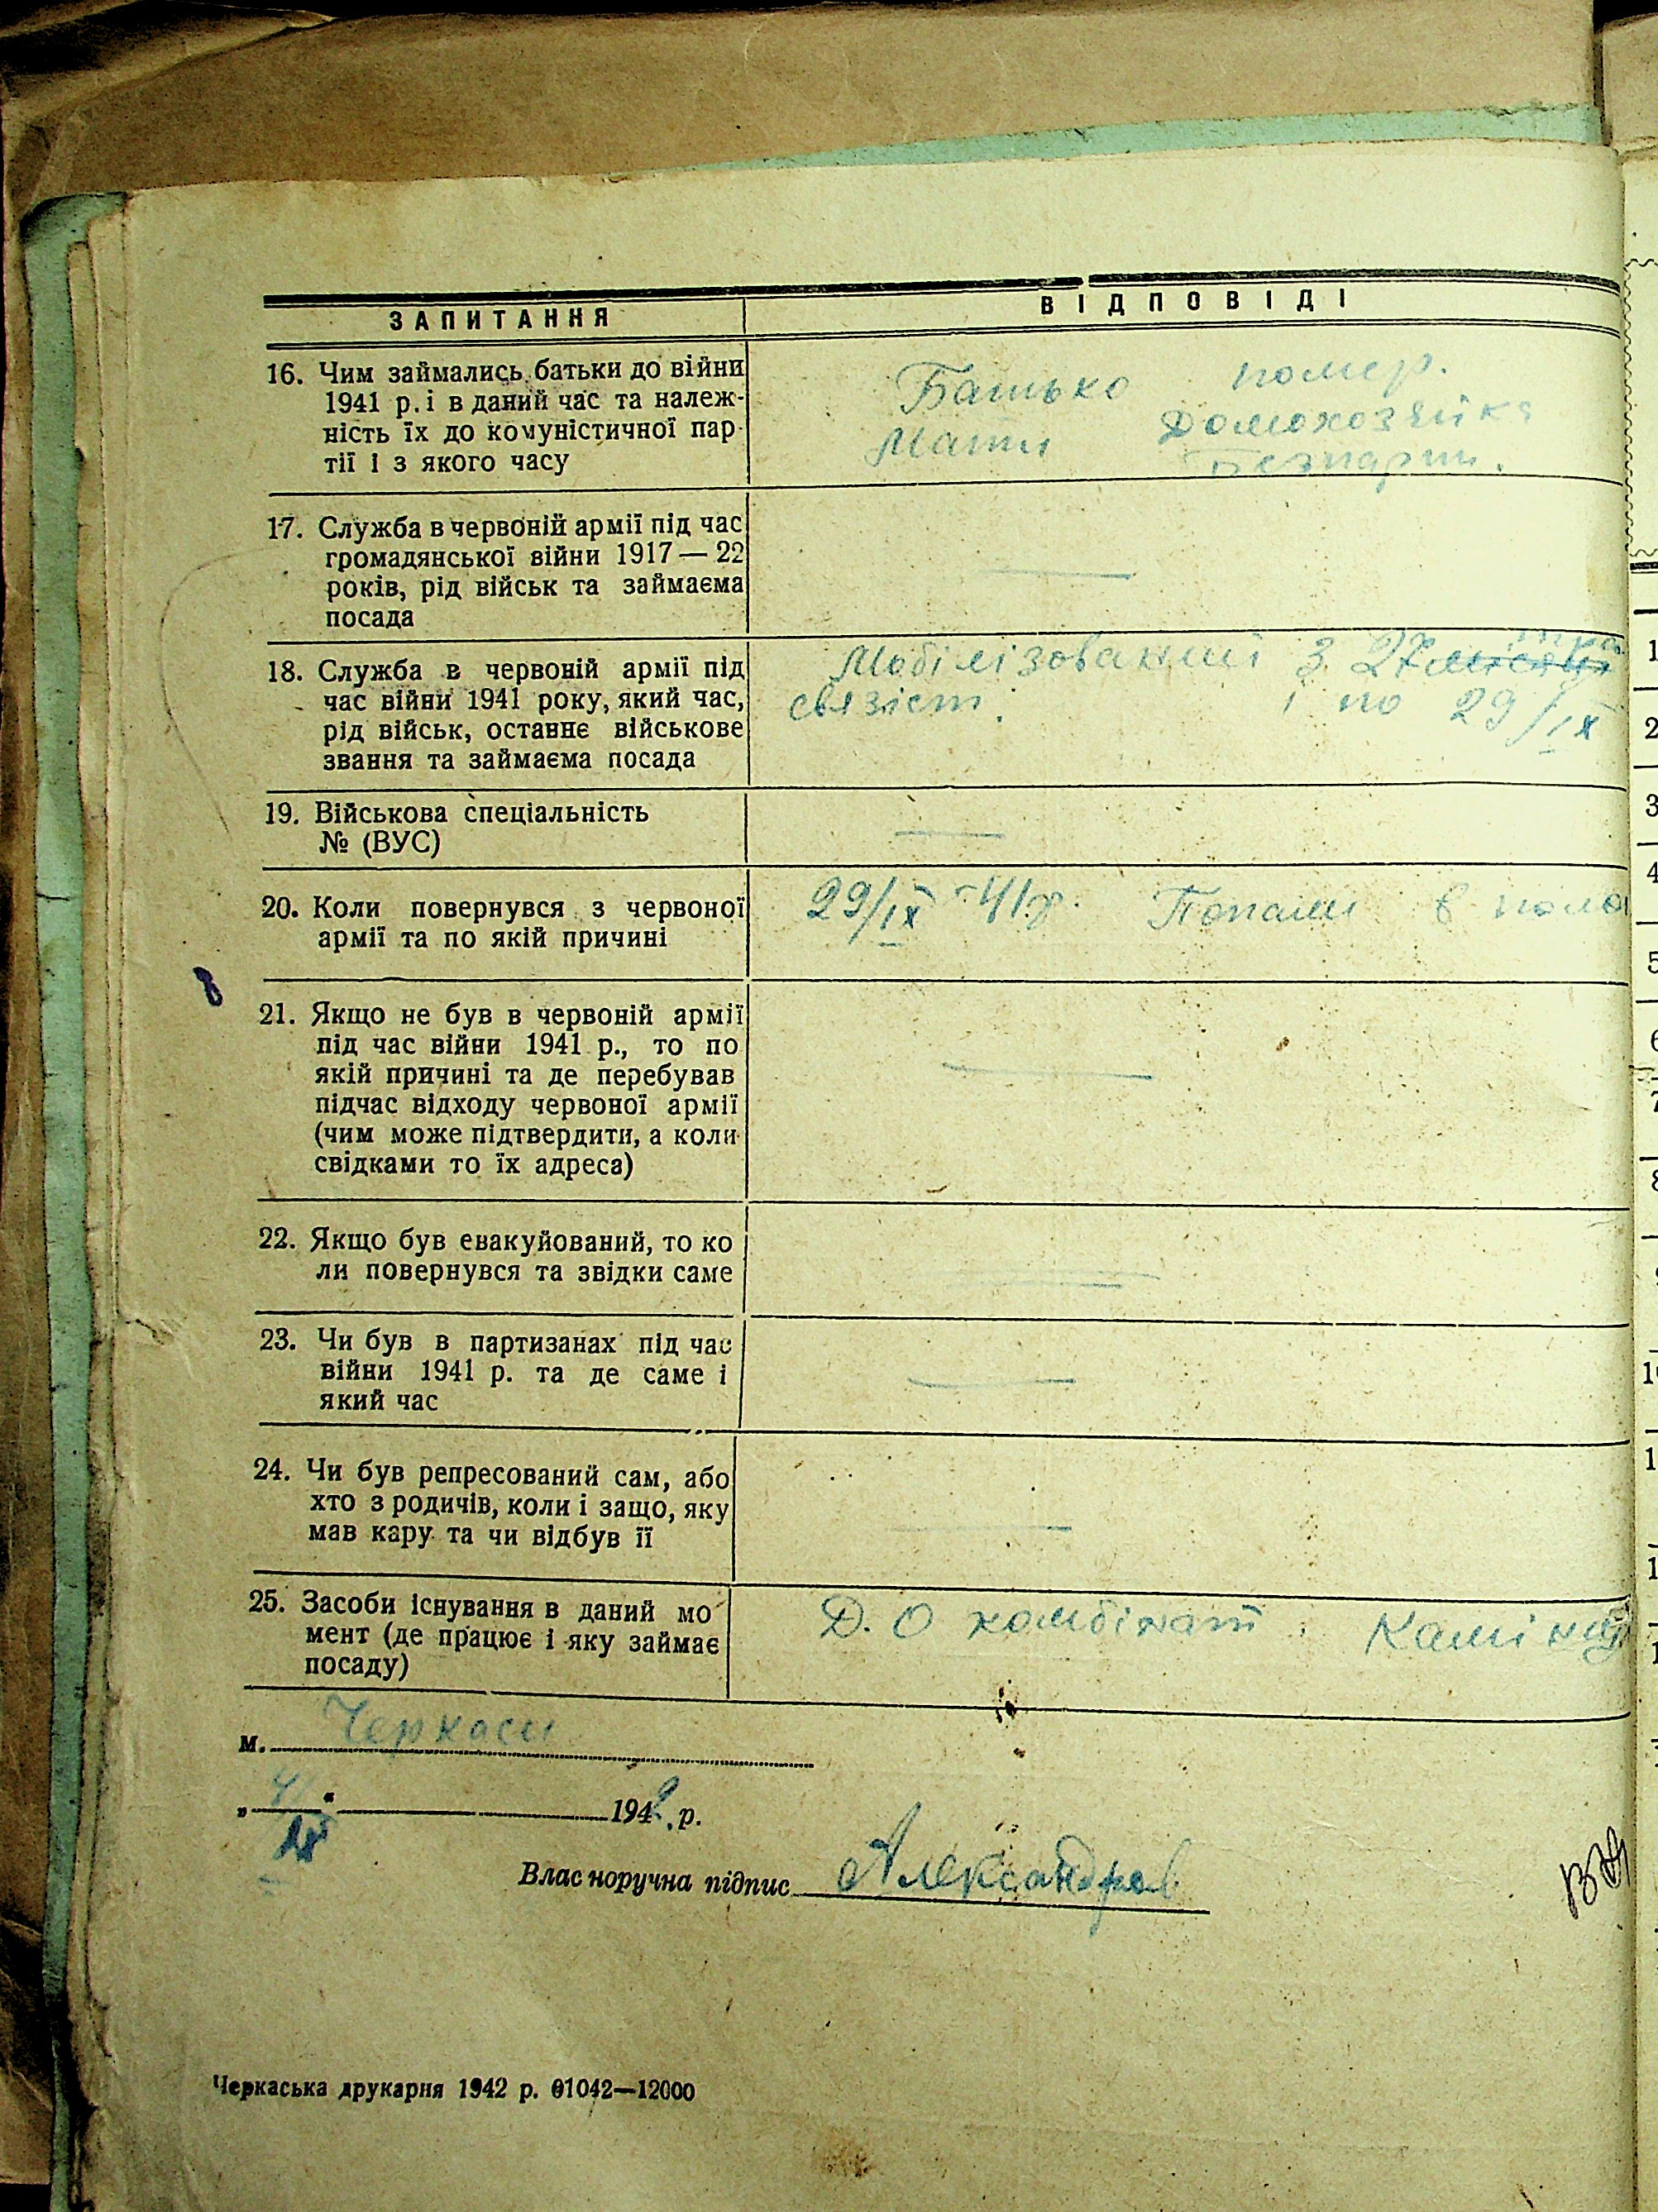 ЗАПИТАННЯ
ВІДПОВІДІ
16. Чим займались батьки до війни
1941 р. і в даний час та належ-
ність їх до комуністичної пар-
тії і з якого часу
Батько помер.
Мати Домохозяйка
Безпарт.
17. Служба в червоній армії під час
громадянської війни 1917 — 22
років, рід військ та займаєма
посада
18. Служба в червоній армії під
час війни 1941 року, який час,
рід військ, останнє військове
звання та займаєма посада
Мобілізований з 27
связіст. і по 29/IX
19. Військова спеціальність
№ (ВУС)
20. Коли повернувся з червоної
армії та по якій причині
29/IX-41р. Попали в поло
21. Якщо не був в червоній армії
під час війни 1941 р., то по
якій причині та де перебував
підчас відходу червоної армії
(чим може підтвердити, а коли
свідками то їх адреса)
22. Якщо був евакуйований, то ко
ли повернувся та звідки саме
23. Чи був в партизанах під час
війни 1941 р. та де саме і
який час
24. Чи був репресований сам, або
хто з родичів, коли і защо, яку
мав кару та чи відбув її
25. Засоби існування в даний мо
мент (де працює і яку займає
посаду)
Д. О комбінат.
м. Черкаси
1942 р.
Власноручна підпис Александров
Черкаська друкарня 1942 р. 01042—12000